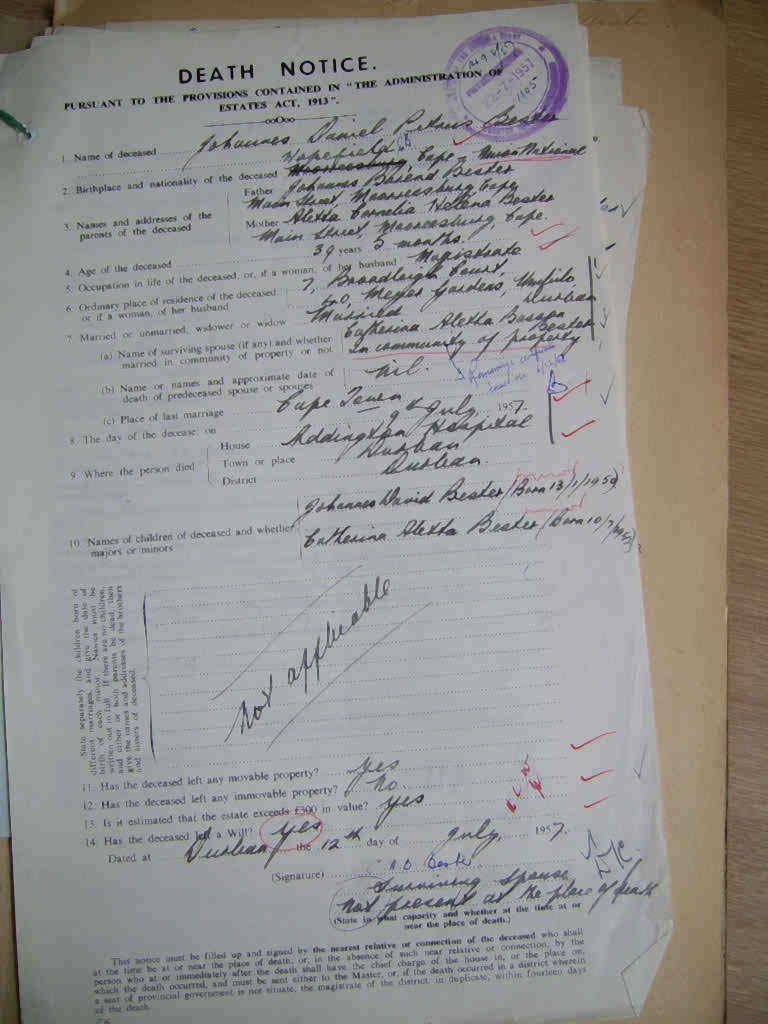 DEATH NOTICE.
PURSUANT TO THE PROVISIONS CONTAINED IN "THE ADMINISTRATION OF
ESTATES ACT, 1913".
1. Name of deceased Johannes Daniel Petrus Bester
Hopefield
2. Birthplace and nationality of the deceased Moorreesburg, Cape Union National
Father Johannes Barend Bester
Main Street, Moorreesburg Cape
3. Names and addresses of the parents of the deceased
Mother Aletta Cornelia Helena Bester
Main Street, Moorreesburg, Cape.
4. Age of the deceased 39 years 5 months.
5. Occupation in life of the deceased, or, if a woman, of her husband Magistrate
6. Ordinary place of residence of the deceased or if a woman, of her husband 7, Broadleigh Court,
Meyer Gardens, Umbilo
Durban
7. Married or unmarried, widower or widow Married
(a) Name of surviving spouse (if any) and whether married in community of property or not Catherina Aletta Basson Bester
in community of property
(b) Name or names and approximate date of death of predeceased spouse or spouses nil.
(c) Place of last marriage Cape Town
8. The day of the decease on 9th July, 1957.
9. Where the person died House Addington Hospital
Town or place Durban
District Durban.
Johannes David Bester (Born 13/1/1950)
10. Names of children of deceased and whether majors or minors
Catherina Aletta Bester (Born 10/7/
State separately the children born of
different marriages, and give the date of
birth of each minor. Names must be
written out in full. If there are no children,
and either or both parents be dead, then
give the names and addresses of the brothers
and sisters of deceased.
not applicable
11. Has the deceased left any movable property? yes
12. Has the deceased left any immovable property? no
13. Is it estimated that the estate exceeds £300 in value? yes
14. Has the deceased left a Will? yes
Dated at Durban the 12th day of July, 1957.
(Signature) Bester
Surviving Spouse
not present at the place of death
(State in what capacity and whether at the time at or
near the place of death.)
This notice must be filled up and signed by the nearest relative or connection of the deceased who shall
at the time be at or near the place of death, or, in the absence of such near relative or connection, by the
person who at or immediately after the death shall have the chief charge of the house in, or the place on,
which the death occurred, and must be sent either to the Master, or, if the death occurred in a district wherein
a seat of provincial government is not situate, the magistrate of the district, in duplicate, within fourteen days
of the death.